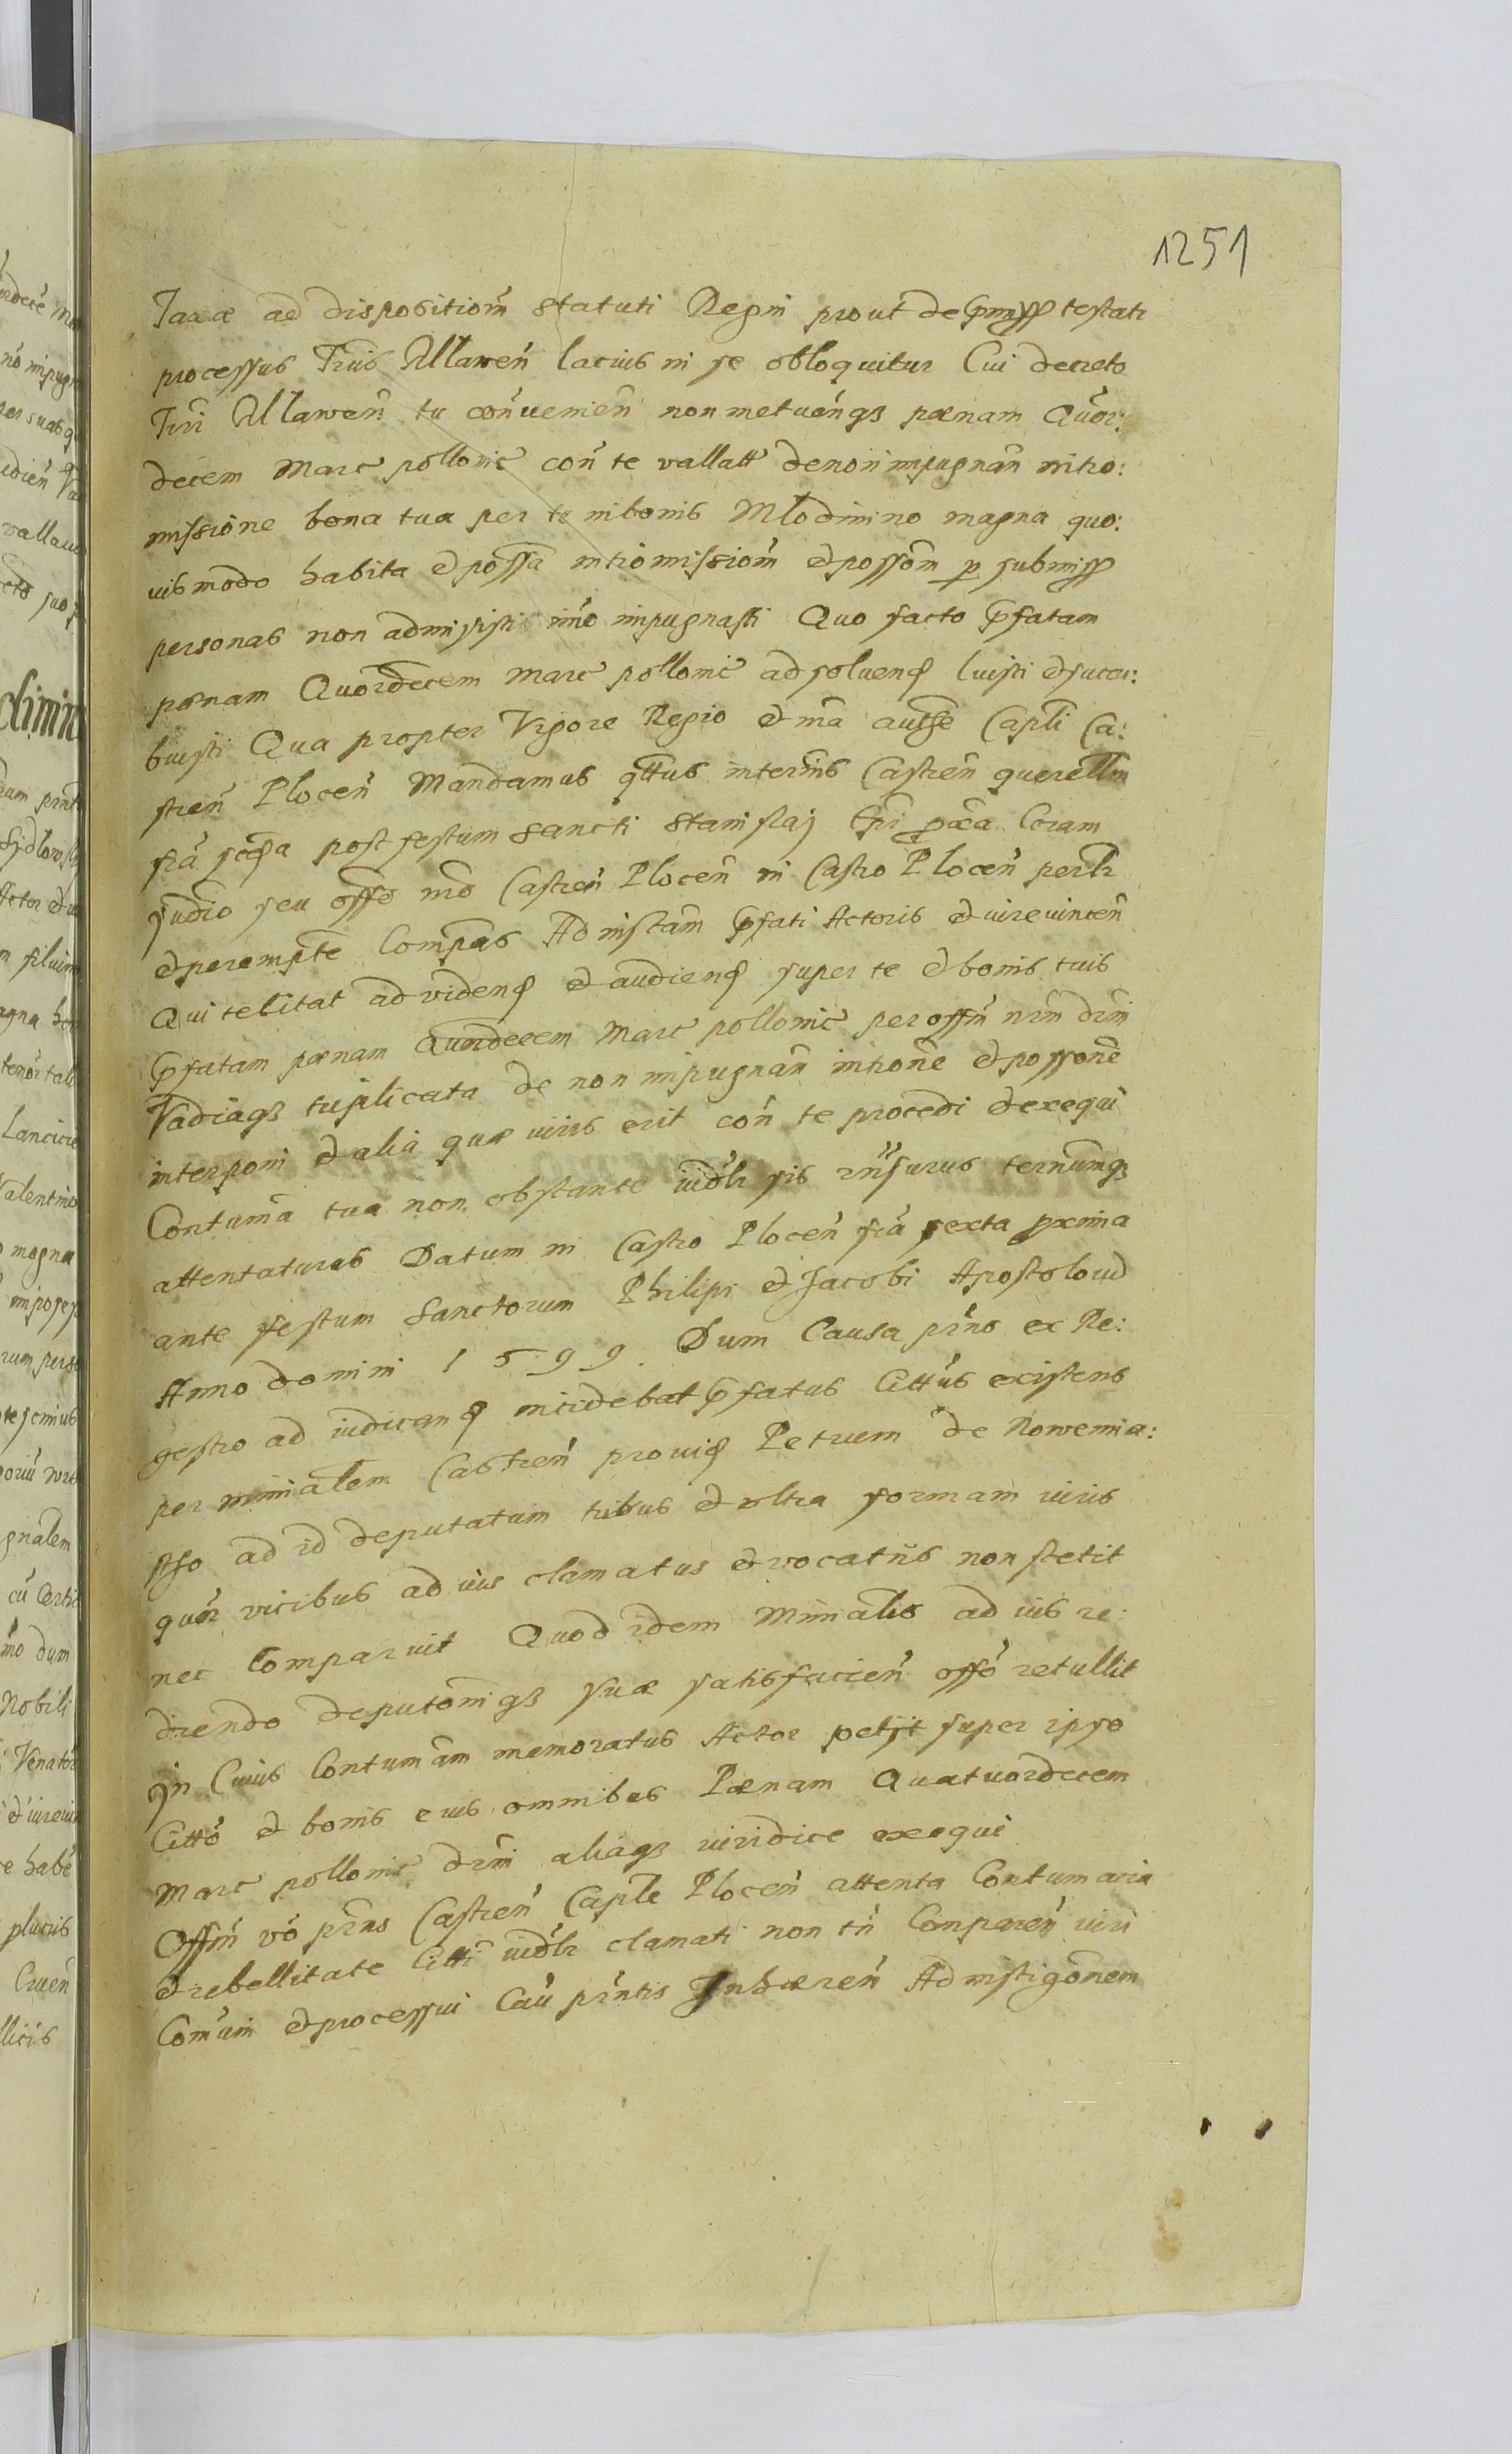 1251
Taxæ ad dispositiom̃ statuti Regni prout de p̃miss̃ testati
processus Tr̃nis Mlawen̄ lacius in se obloquitur Cui decreto
Tr̃ri Mlawen̄ tu con̄uenien̄ non metuen̄qз pœnam Qũor:
decem Marc̃ pollonic̃ con̄ te vallatt̃ de non impugnan̄ intro:
missione bona tua per te in bonis Mlodinino magna quo:
uis modo habita et posśa intromissiom̃ et possom̃ p̱ submiss̃
personas non admisisti im̃o impugnasti Quo facto p̃fatam
pœnam Quordecem Marc̃ pollonic̃ ad soluend̃ luisti et succu:
buisti Qua propter Vigore Regio et mã autt̃e Capl̃i Ca:
stren̄ Plocen̄ Mandamus q̃ttus in termĩs Castren̄ querellm̃
fr̃ia scđa post festum Sancti Stanislaj Ep̃i px̃a Coram
Judio seu offo mõ Castren̄ Plocen̄ in Castro Plocen̄ perlr̃
et perempt̃e Comp̃as Ad instam̃ p̃fati Actoris et iure uincen̄
Qui te citat ad vidend̃ et audiend̃ super te et bonis tuis
p̃fatam pœnam Quordecem Marc̃ pollonic̃ per off̃m nr̃m dr̃ni
Vadiaqз triplicata de non impugnan̄ introne et possone
interponi et alia quæ iuris erit con̄ te procedi et exequi
Contumã tua non obstante iud̃lr sis rñsurus ternumqз
attentaturus Datum in Castro Plocen̄ fr̃ia sexta px̃ima
ante festum Sanctorum Philipi et Jacobi Apostoloru̅
Anno domini 1599. Dum Causa prñs ex Re:
gestro ad iudicand̃ incidebat p̃fatus Citt̃us existens
per minialem̃ Castren̄ prouid̃ Petrum de Nowemia:
sto ad id deputatum tribus et ultra formam iuris
quor̃ vicibus ad ius clamatus et vocatus non stetit
nec Comparuit Quod idem Minialis̃ ad ius re:
diendo deputoniqз suæ satisfacien̄ offo retullit
In Cuius Contumam̃ memoratus Actor petijt super ipso
Citto et bonis eius omnibus Pœnam Quatuordecem
Marc̃ pollonic̃ dr̃ni aliaqз iuridice exequi
Off̃m võ prñs Castren̄ Caple Plocen̄ attenta Contumacia
et rebellitate Citti iud̃lr clamati non tñ Comparen̄ iuri
Comuñi et processui Cau̅ prñtis Inhæren̄ Ad instigonem̃